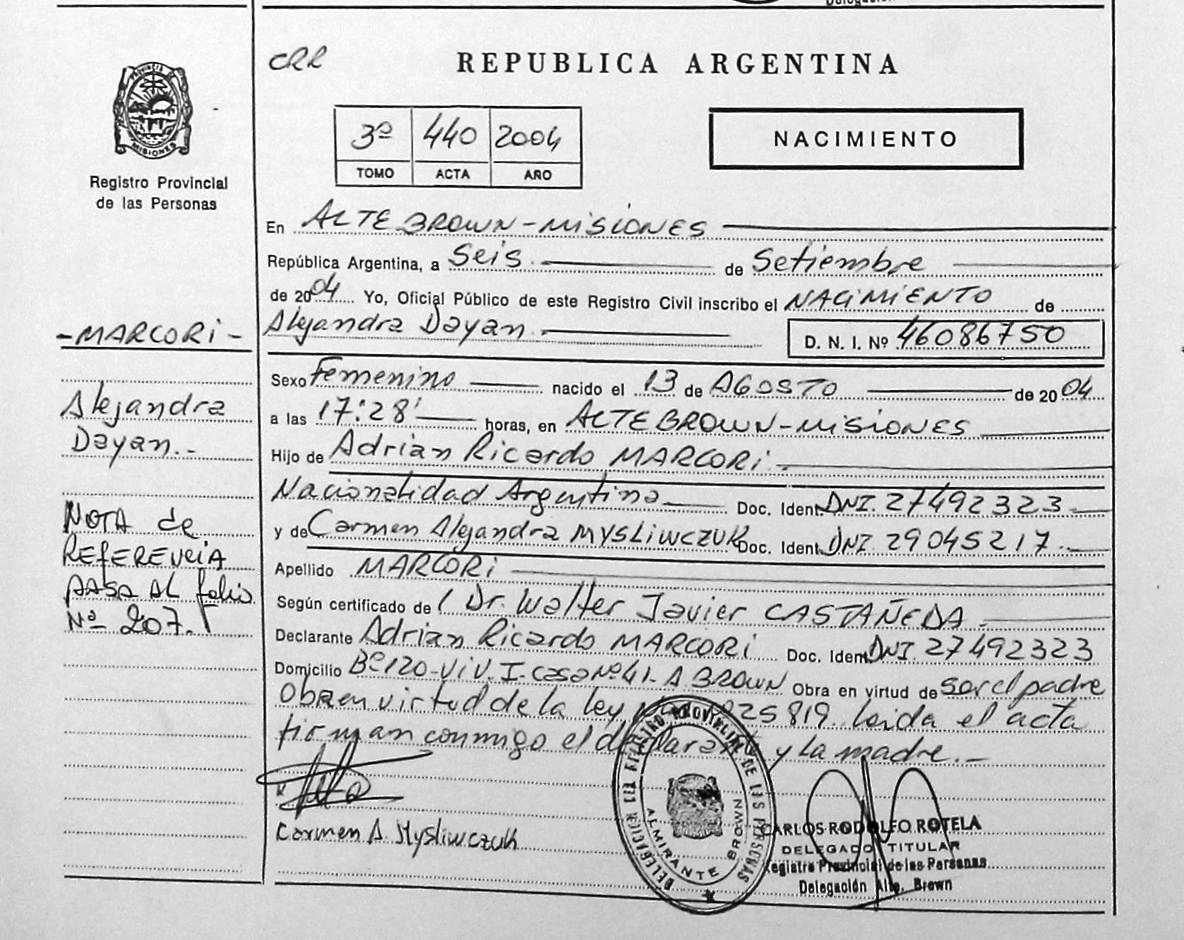 Delegación
CRR
REPUBLICA ARGENTINA
PROVINCIA DE
MISIONES
Registro Provincial
de las Personas
3º 440 2004
TOMO ACTA AÑO
NACIMIENTO
En ALTE BROWN-MISIONES
República Argentina, a Seis de Setiembre
de 2004 Yo, Oficial Público de este Registro Civil inscribo el NACIMIENTO de
Alejandra Dayan. D. N. I. Nº 46086750
-MARCORI-
Alejandra
Dayan.-
NOTA de
REFERENCIA
PASA AL folio
Nº 207.
Sexo Femenino nacido el 13 de AGOSTO de 2004
a las 17:28' horas, en ALTE BROWN-MISIONES
Hijo de Adrian Ricardo MARCORI.
Nacionalidad Argentina Doc. Ident. DNI. 27492323
y de Carmen Alejandra MYSLIWCZUK Doc. Ident. DNI. 29045217.
Apellido MARCORI
Según certificado de Dr. Walter Javier CASTAÑEDA
Declarante Adrian Ricardo MARCORI Doc. Ident. DNI 27492323
Domicilio Bº 120-ViV. I-Casa Nº 41-A BROWN Obra en virtud de ser el padre
Obra en virtud de la ley 25819. Leida el acta
firman conmigo el declarante y la madre.-
Carmen A. Mysliwczuk
DELEGACION DEL REGISTRO PROVINCIAL DE LAS PERSONAS
ALMIRANTE BROWN
CARLOS RODOLFO ROTELA
DELEGADO TITULAR
Registro Provincial de las Personas
Delegación Alte. Brown